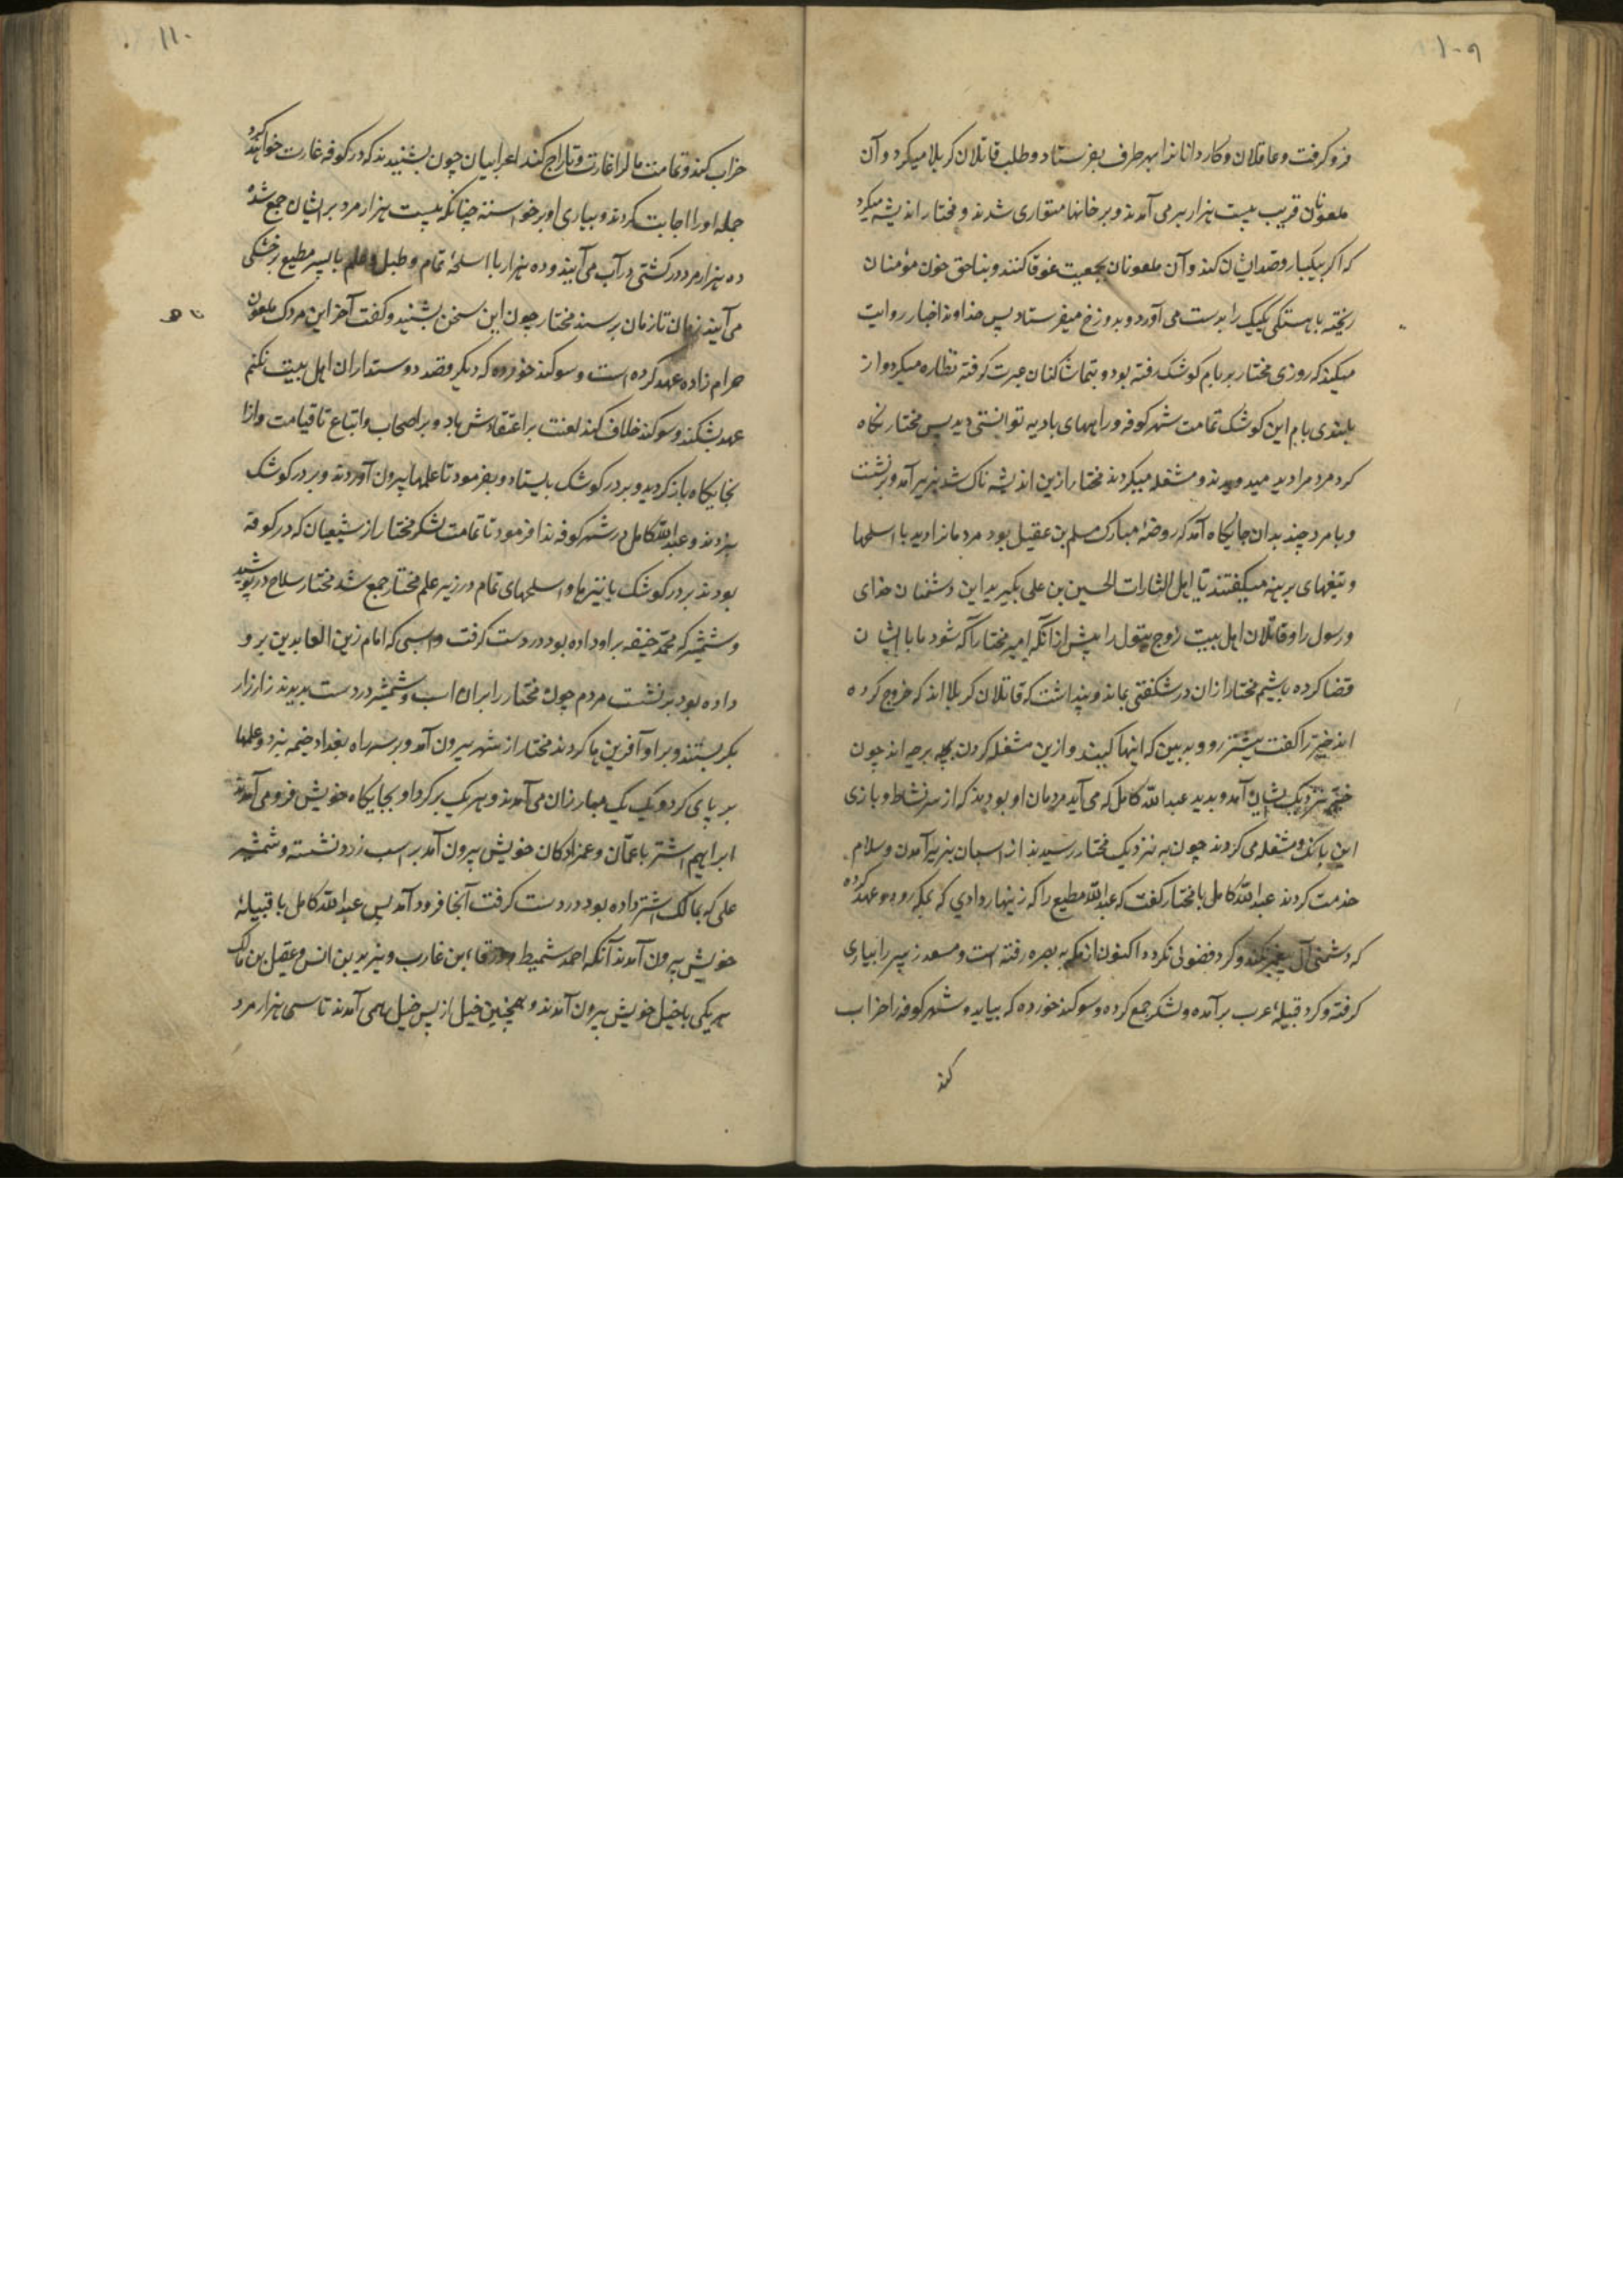 ۱۰۹
فرو گرفت و عاقلان و کاردانانرا بهر طرف بفرستاد و طلب قاتلان کربلا میکرد و آن
ملعونان قریب بیست هزار بر می آمدند و بر خانها متواری شدند و مختار اندیشه میکرد
که اگر بیکبار و قصد ایشان کند و آن ملعونان بجمعیت غوقا کنند و بناحق خون مؤمنان
ریخته باهستکی یکیک را بدست می آورد و بدوزخ میفرستاد پس خداوند اخبار روایت
میکند که روزی مختار بر بام کوشک رفته بود و بتماشا کنان عبرت کرفته نظاره میکرد و از
بلندی بام این کوشک تمامت شهر کوفه و راههای بادیه توانستی دید پس مختار نکاه
کرد مردمرا دید میدویدند و مشغله میکردند مختار ازین اندیشه ناک شد بزیر آمد و برنشست
و با مرد چند بدان جایکاه آمد که روضهٔ مبارک مسلم بن عقیل بود مردمانرا دید با اسلحها
و تیغهای برهنه میکفتند یا اهل الثارات الحسین بن علی بکیرید این دشمنان خدای
و رسول را و قاتلان اهل بیت زوج بتول را پیش از آنکه امیر مختار آکه شود ما با ایشان
قضا کرده باشیم مختار ازان در شکفتی بماند و پنداشت که قاتلان کربلا اند که خروج کرده
اند خیر را کفت پیشتر رو و به بین که اینها کیند و ازین مشغله کردن بهر چه اند چون
خیر نزدیک ایشان آمد و بدید عبدالله کامل که می آید مردمان او بودند که از سر نشاط و بازی
این بانک و مشغله می کردند چون به نزدیک مختار رسیدند از اسپان بزیر آمدن و سلام
خدمت کردند عبدالله کامل با مختار کفت که عبدالله مطیع را که زینهار دادی که بمکه رود و عهد کرده
که دشمنی آل پیغمبر نکند و کرد فضولی نکرده اکنون از مکه به بصره رفته است و مسعد زبیر را بیاری
کرفته و کرد قبیلهٔ عرب برآمده و لشکر جمع کرده و سوکند خورده که بیاید و شهر کوفه را خراب
کند
۱۱۰
خراب کند و تمامت مالرا غارت و تاراج کند اعرابیان چون بشنیدند که در کوفه غارت خواهند کرد
جمله او را اجابت کردند و بیاری او برخواستند چنانکه بیست هزار مرد بر ایشان جمع شد
ده هزار مرد در کشتی در آب می آیند و ده هزار با اسلحهٔ تمام و طبل و علم با پسر مطیع بر خشکی
می آیند زمان تا زمان برسند مختار چون این سخن بشنید و کفت آخر این مردک ملعون
حرام زاده عهد کرده است و سوکند خورده که دیکر قصد دوستداران اهل بیت نکنم
عهد بشکند و سوکند خلاف کند لعنت بر اعتقادش باد و بر اصحاب و اتباع تا قیامت و ازا
بجایکاه باز کردید و بر در کوشک بایستاد و بفرمود تا علمها بیرون آوردند و بر در کوشک
بزدند و عبدالله کامل در شهر کوفه ندا فرمود تا تمامت لشکر مختار از شیعیان که در کوفه
بودند بر در کوشک با نیزها و اسلحهای تمام در زیر علم مختار جمع شد مختار سلاح در پوشید
و شمشیر که محمد حنیفه بر او داده بود در دست کرفت و اسبی که امام زین العابدین برو
داده بود بر نشست مردم چون مختار را بران اسب و شمشیر در دست بدیدند زار زار
بکریستند و بر او آفرین ها کردند مختار از شهر بیرون آمد و بر سر راه بغداد خیمه بزد و علمها
بر پای کرد و یک یک مبارزان می آمدند و هر یک بر کرد او بجایکاه خویش فرو می آمدند
ابراهیم اشتر با عمّان و عمزادکان خویش بیرون آمد بر اسب زرد نشسته و شمشیر
علی که بمالک اشتر داده بود در دست کرفت آنجا فرود آمد پس عبدالله کامل با قبیلهٔ
خویش بیرون آمدند آنکه احمد شمیط و ورقاء بن غارب و یزید بن انس و عقیل بن مالک
هر یکی با خیل خویش بیرون آمدند و همچنین خیل از پس خیل همی آمدند تا سی هزار مرد